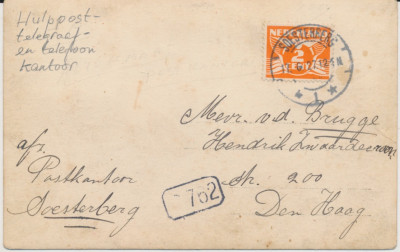 Hulppost-
telegraaf-
en telefoon
kantoor
2
Mevr. v.d. Brugge
Hendrik Zwaardecroon
str. 200
Den Haag
afz.
Postkantoor
Soesterberg
762